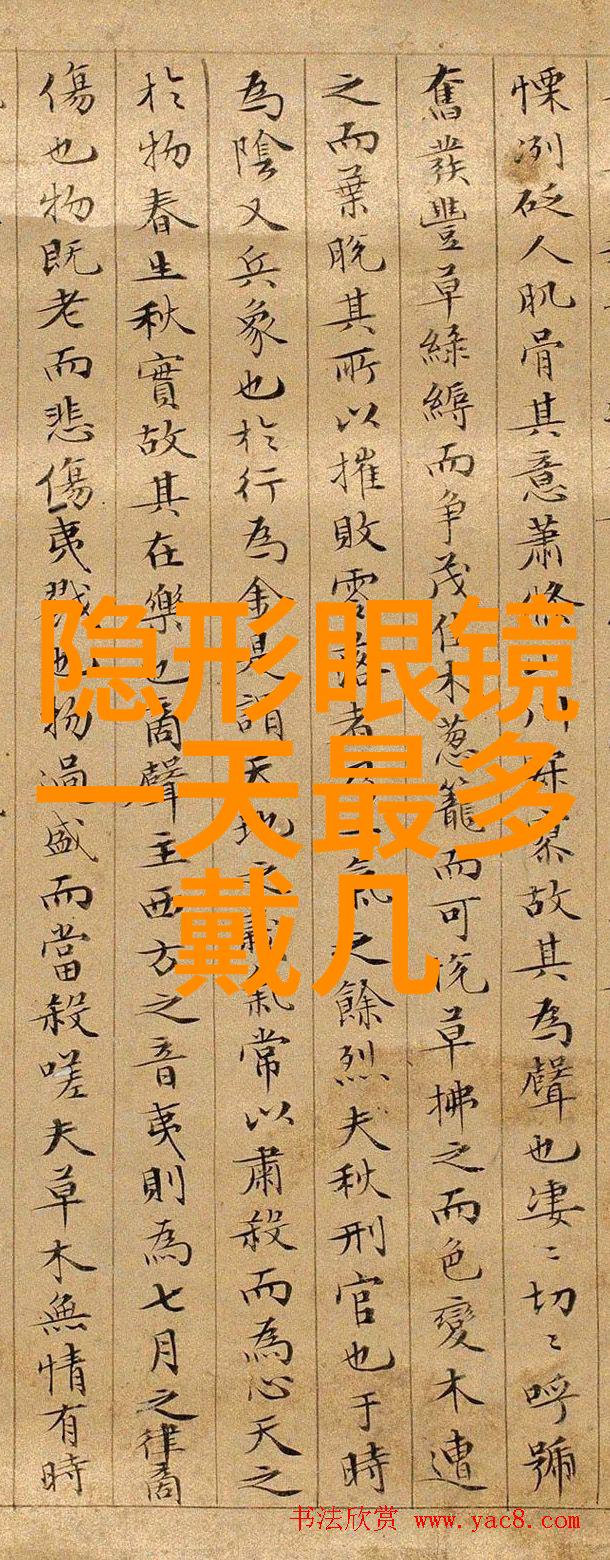 慄冽砭人肌骨其意蕭條川寂寥故其為聲也淒〻切〻呼號
奮發豐草綠縟而争茂佳木葱籠而可悦草拂之而色變木遭
之而葉脱其所以摧敗零落者一氣之餘烈夫秋刑官也于時
為陰又兵象也於行為金是謂天地之義氣常以肅殺而為心天之
於物春生秋實故其在樂也商聲主西方之音夷則為七月之律商
傷也物既老而悲傷夷戮也物過盛而當殺嗟夫草木無情有時
隐形眼镜
一天最多
戴几
书法欣赏 www.yac8.com